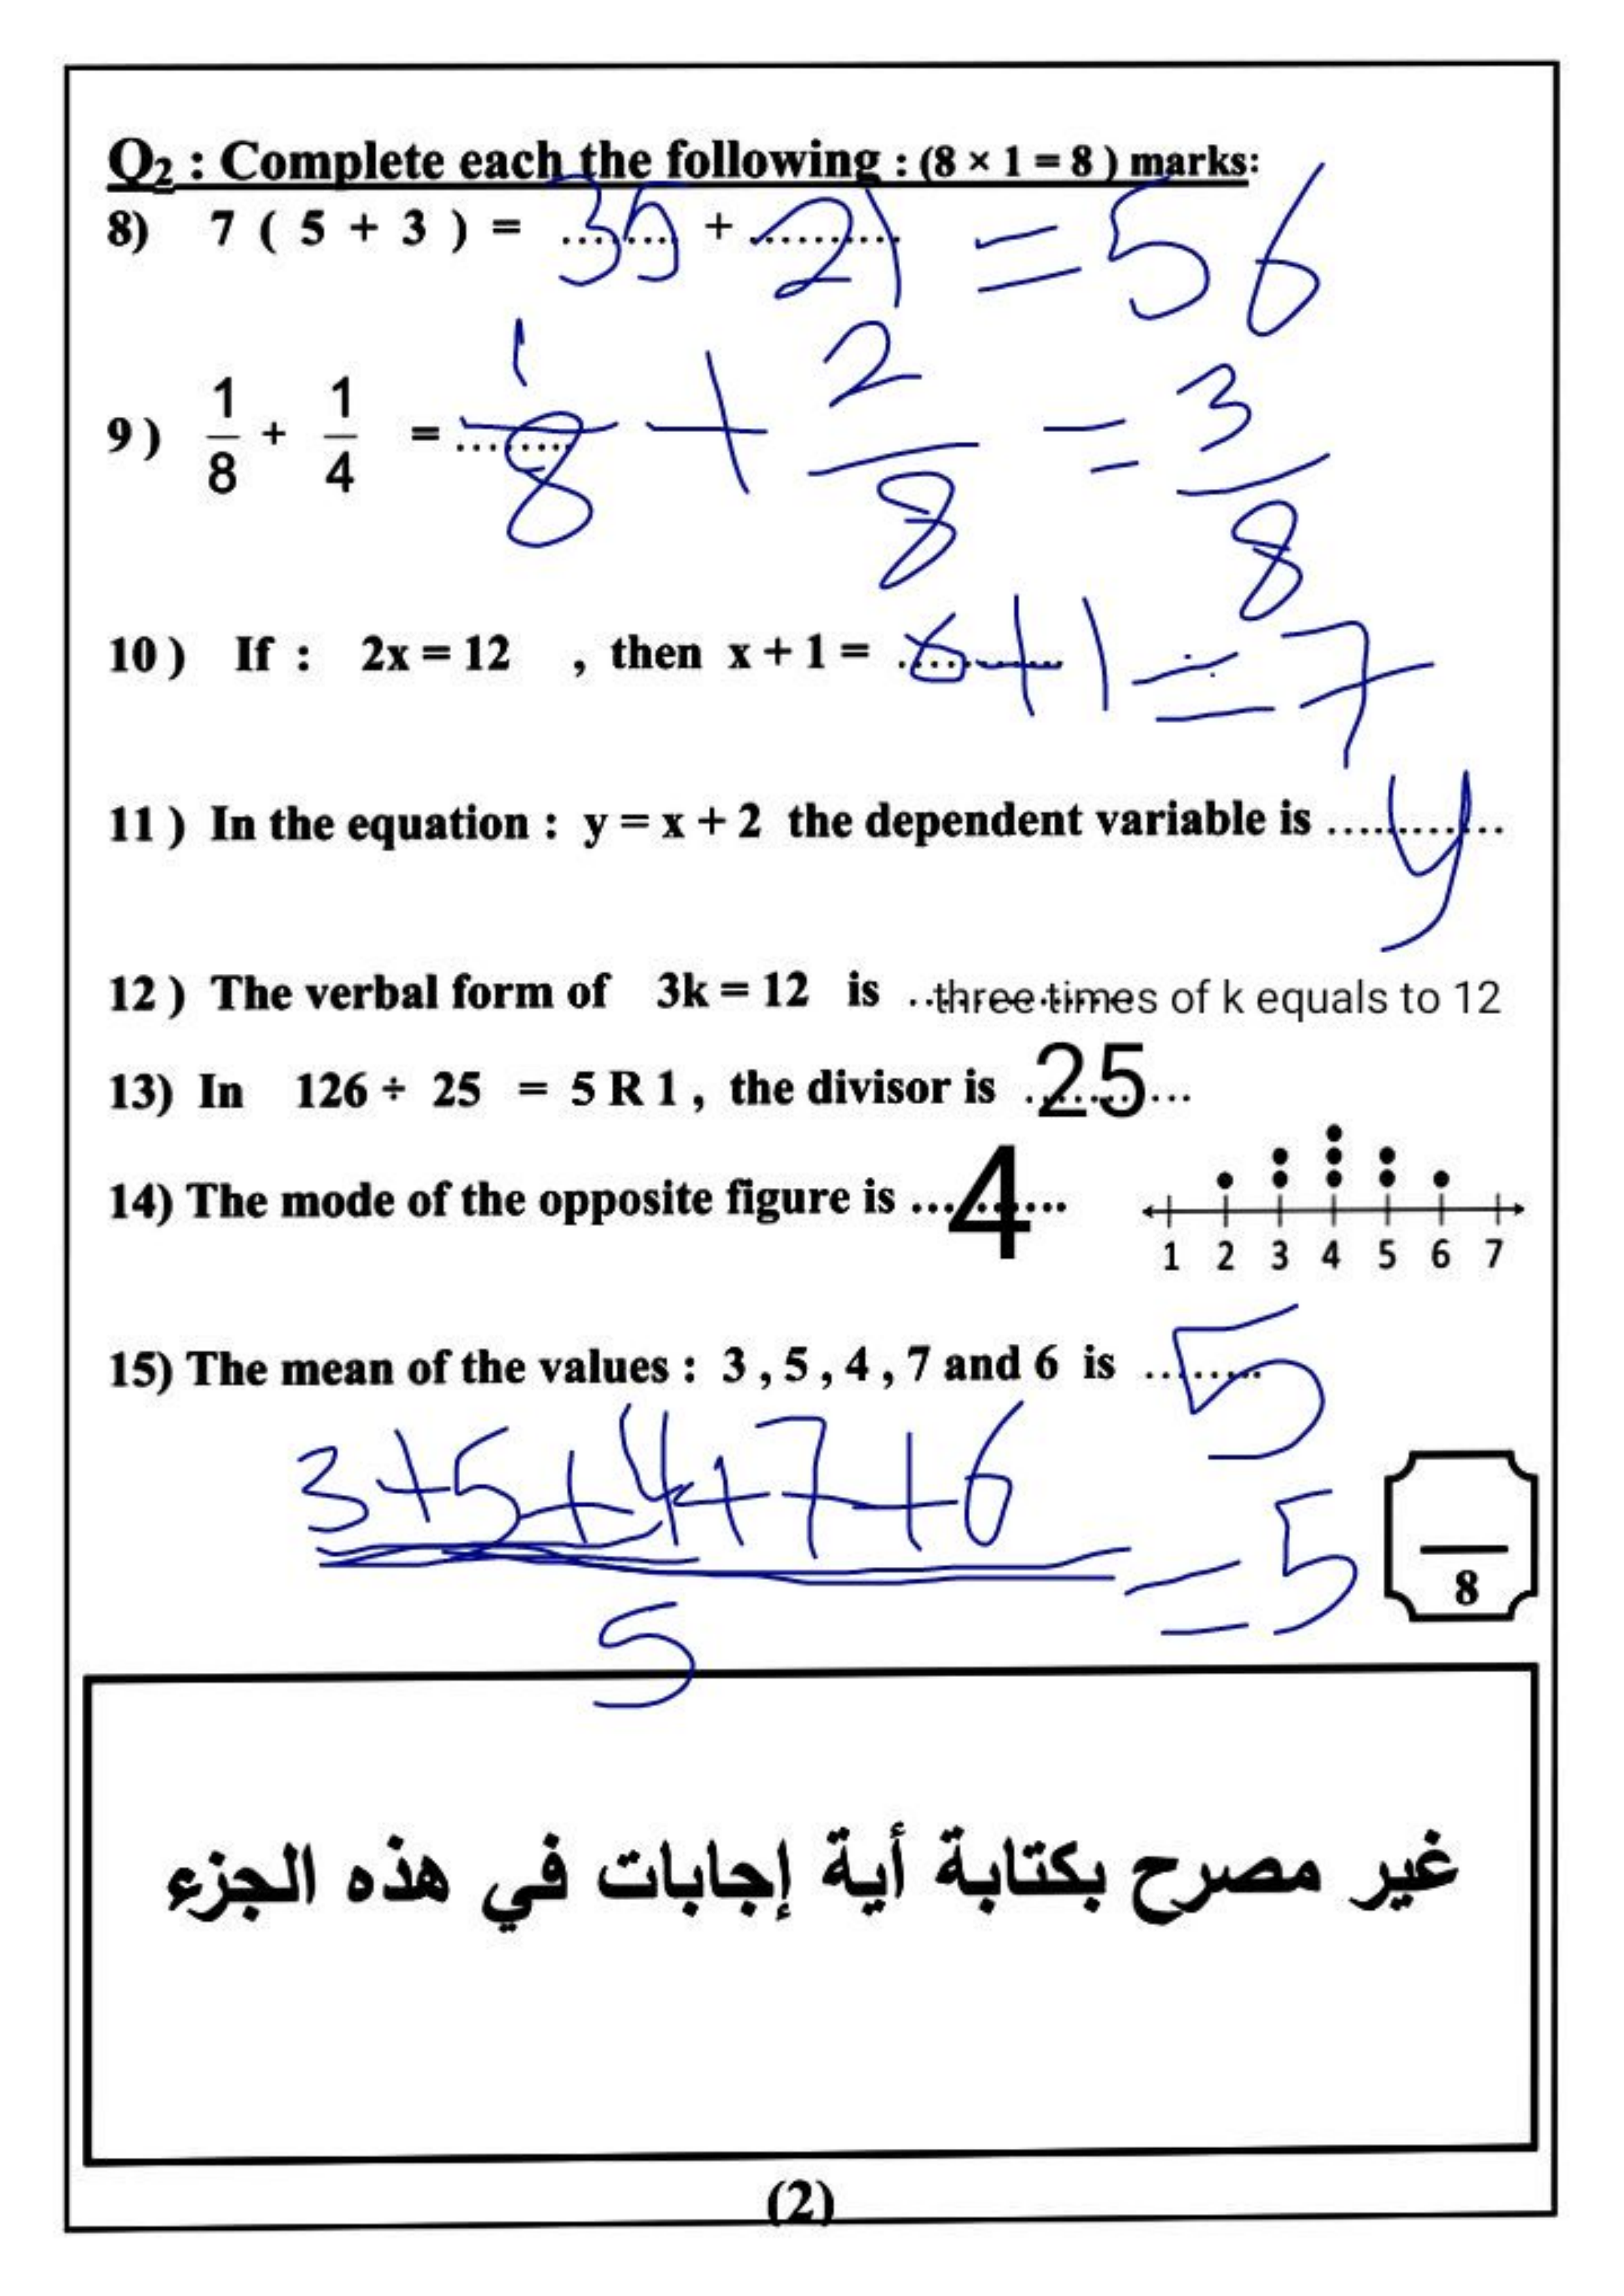 Q2 : Complete each the following : (8 × 1 = 8 ) marks:
8) 7 ( 5 + 3 ) = 35 + 21 = 56
9) 1/8 + 1/4 = 1/8 + 2/8 = 3/8
10) If : 2x = 12 , then x + 1 = 6+1 = 7
11) In the equation : y = x + 2 the dependent variable is ............ y
12) The verbal form of 3k = 12 is three times of k equals to 12
13) In 126 ÷ 25 = 5 R 1 , the divisor is 25
14) The mode of the opposite figure is 4
1 2 3 4 5 6 7
15) The mean of the values : 3 , 5 , 4 , 7 and 6 is 5
3+5+4+7+6
= 5
5
8
غير مصرح بكتابة أية إجابات في هذه الجزء
(2)